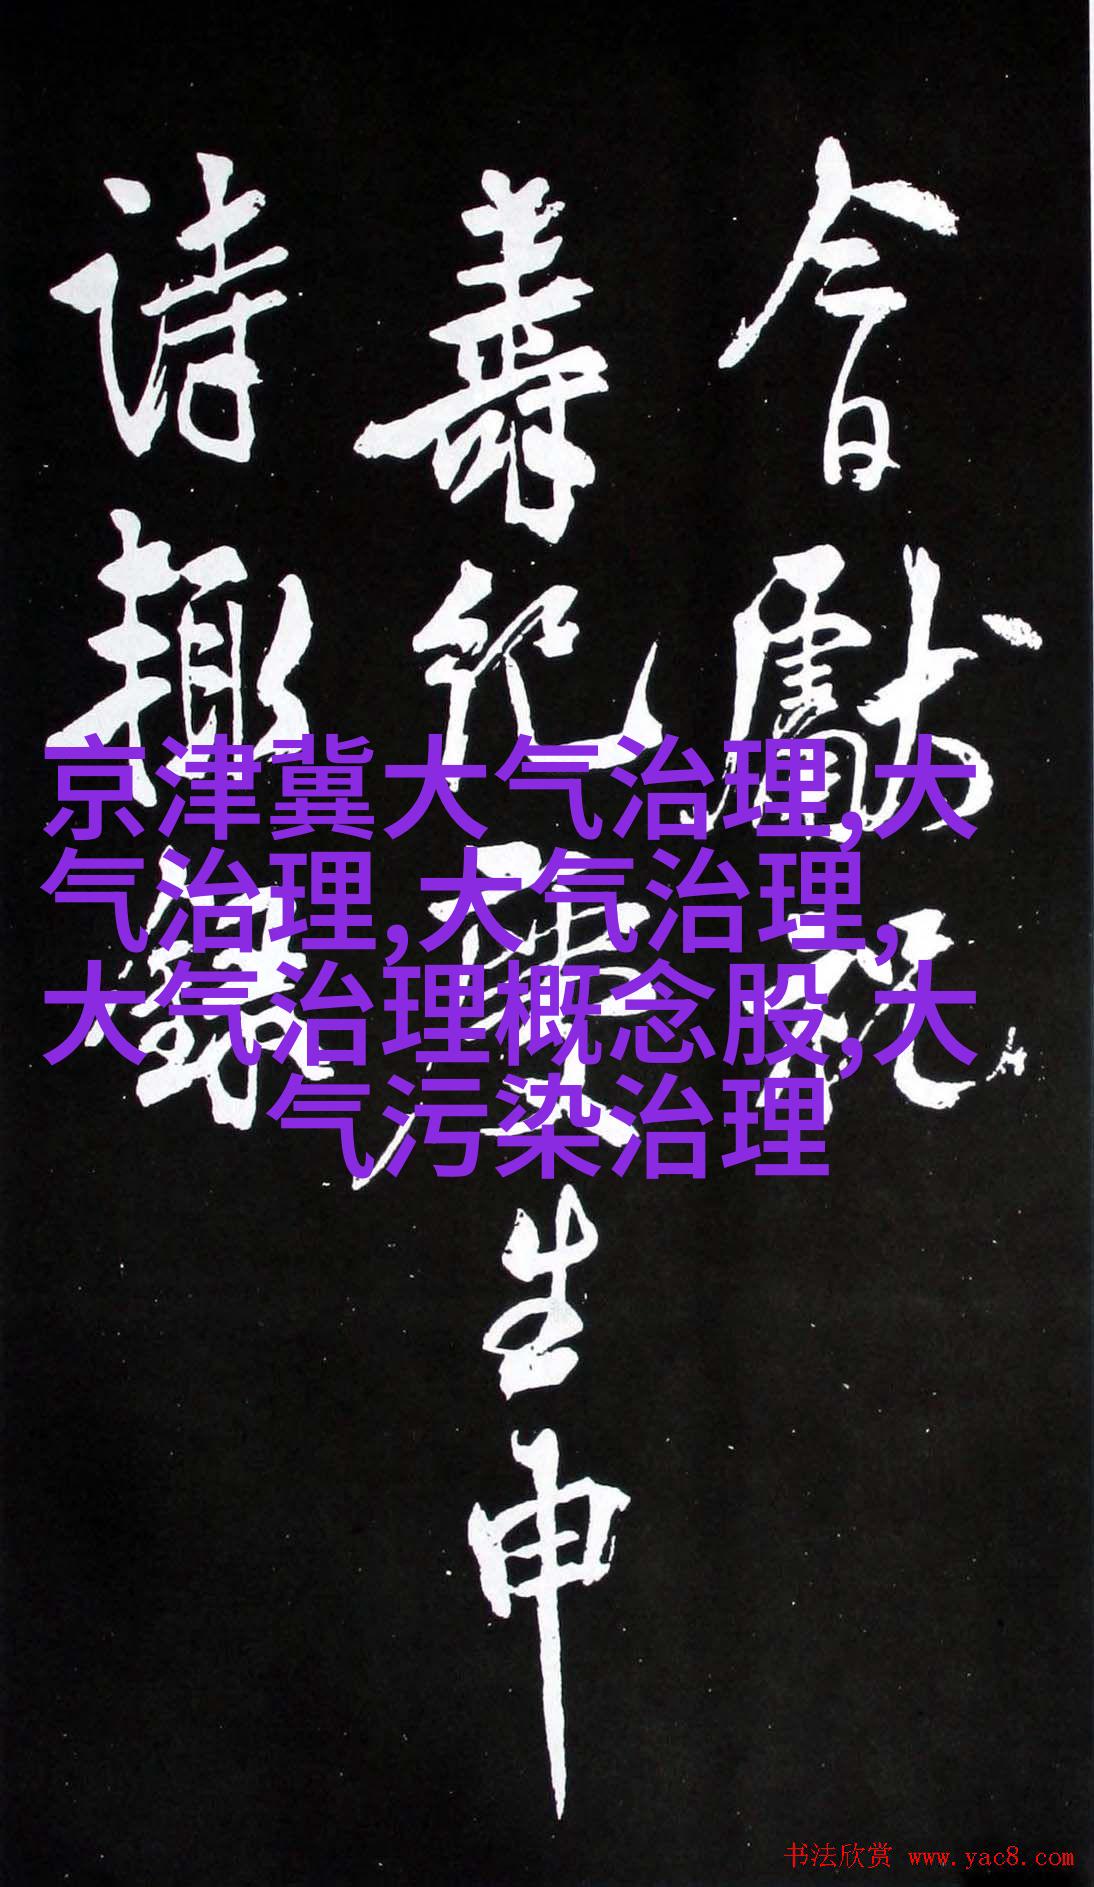 今日獻祝
壽生申
詩趣
京津冀大气治理,大
气治理,大气治理,
大气治理概念股,大
气污染治理
书法欣赏 www.yac8.com